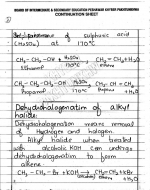 BOARD OF INTERMEDIATE & SECONDARY EDUCATION PESHAWAR KHYBER PAKHTUNKHWA
CONTINUATION SHEET
presence of sulphuric acid
(H₂SO₄) at 170°C
CH₃-CH₂-OH H₂SO₄ CH₂=CH₂+H₂O
ethanol 170°C ethene
CH₃-CH₂-CH₂-OH H₂SO₄ CH₃-CH=CH₂
Propanol 170°C propene +H₂O
Dehydrohalogenation of alkyl
halide:
Dehydrohalogenation means removal
of Hydrogen and halogen.
Alkyl halide when treated
with alcoholic KOH can undergo
dehydrohalogenation to form
alkene.
CH₃-CH₂-Br + KOH CH₂=CH₂
ethene
+H₂O